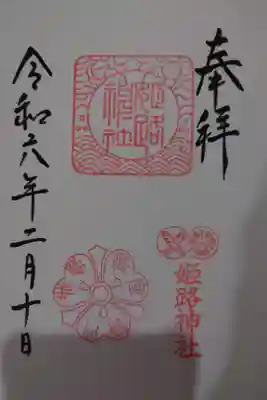 奉拝
姫路神社
姫路神社
令和六年二月十日